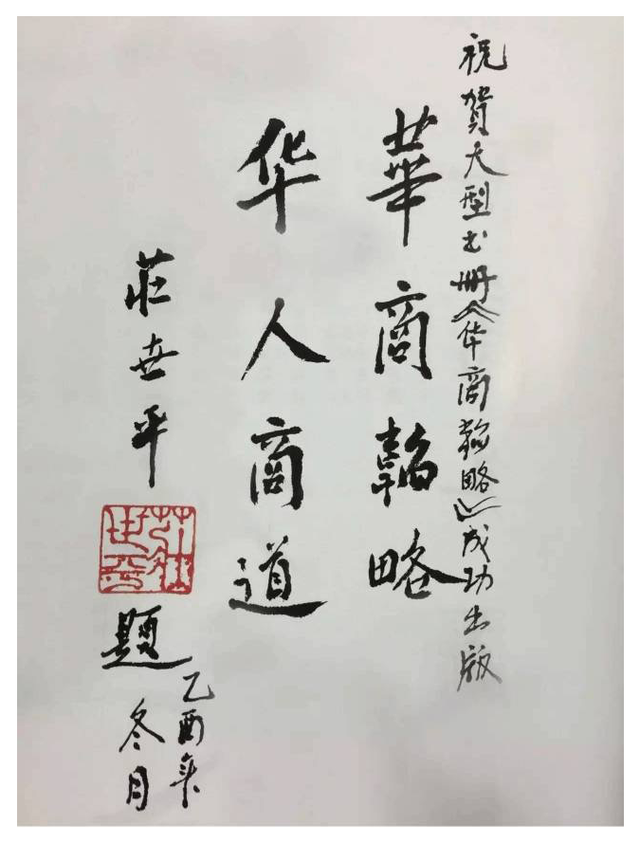 祝賀大型书册《华商韬略》成功出版
華商韜略
华人商道
莊世平
莊世平
題
乙酉年
冬月